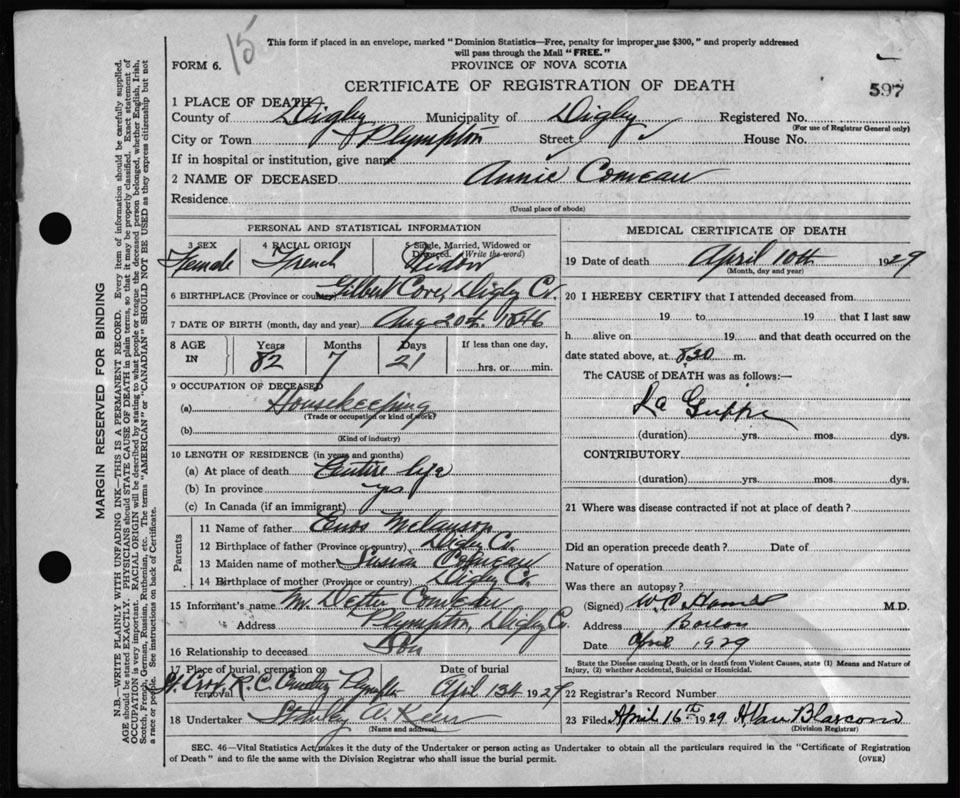 15
This form if placed in an envelope, marked "Dominion Statistics—Free, penalty for improper use $300," and properly addressed
will pass through the Mail "FREE."
FORM 6.
PROVINCE OF NOVA SCOTIA
CERTIFICATE OF REGISTRATION OF DEATH
597
1 PLACE OF DEATH
County of Digby Municipality of Digby Registered No.
(For use of Registrar General only)
City or Town Plympton Street House No.
If in hospital or institution, give name
2 NAME OF DECEASED Annie Comeau
Residence
(Usual place of abode)
PERSONAL AND STATISTICAL INFORMATION
3 SEX 4 RACIAL ORIGIN 5 Single, Married, Widowed or
Divorced. (Write the word)
Female French Widow
6 BIRTHPLACE (Province or country) Gilbert Cove, Digby Co.
7 DATE OF BIRTH (month, day and year) Aug 20th. 1846
8 AGE IN Years Months Days If less than one day,
82 7 21 hrs. or min.
9 OCCUPATION OF DECEASED
(a) Housekeeping
(Trade or occupation or kind of work)
(b)
(Kind of industry)
10 LENGTH OF RESIDENCE (in years and months)
(a) At place of death Entire life
(b) In province yes
(c) In Canada (if an immigrant)
Parents
11 Name of father Enos Melanson
12 Birthplace of father (Province or country) Digby Co.
13 Maiden name of mother Comeau
14 Birthplace of mother (Province or country) Digby Co.
15 Informant's name Comeau
Address Plympton, Digby Co.
16 Relationship to deceased Son
17 Place of burial, cremation or removal Date of burial
R. C. Cemetery Plympton April 13th 1929
18 Undertaker Stanley A.
(Name and address)
MEDICAL CERTIFICATE OF DEATH
19 Date of death April 10th 1929
(Month, day and year)
20 I HEREBY CERTIFY that I attended deceased from
19 to 19 that I last saw
h alive on 19 and that death occurred on the
date stated above, at 820 m.
The CAUSE of DEATH was as follows:—
La Grippe
(duration) yrs. mos. dys.
CONTRIBUTORY
(duration) yrs. mos. dys.
21 Where was disease contracted if not at place of death?
Did an operation precede death? Date of
Nature of operation
Was there an autopsy?
(Signed) M.D.
Address
Date April 1929
State the Disease causing Death, or in death from Violent Causes, state (1) Means and Nature of
Injury, (2) whether Accidental, Suicidal or Homicidal.
22 Registrar's Record Number
23 Filed April 16th 1929
(Division Registrar)
SEC. 46—Vital Statistics Act, makes it the duty of the Undertaker or person acting as Undertaker to obtain all the particulars required in the "Certificate of Registration
of Death" and to file the same with the Division Registrar who shall issue the burial permit.
(OVER)
MARGIN RESERVED FOR BINDING
N.B.—WRITE PLAINLY WITH UNFADING INK—THIS IS A PERMANENT RECORD. Every item of information should be carefully supplied.
AGE should be stated EXACTLY. PHYSICIANS should STATE CAUSE OF DEATH in plain terms, so that it may be properly classified. Exact statement of
OCCUPATION is very important. RACIAL ORIGIN will be described by stating to what people or tongue the deceased person belonged, whether English, Irish,
Scotch, French, German, Russian, Ruthenian, etc. The terms "AMERICAN" or "CANADIAN" SHOULD NOT BE USED as they express citizenship but not
a race or people. See instructions on back of Certificate.